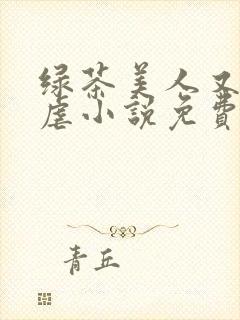 绿茶美人又
虐小説免費
青丘